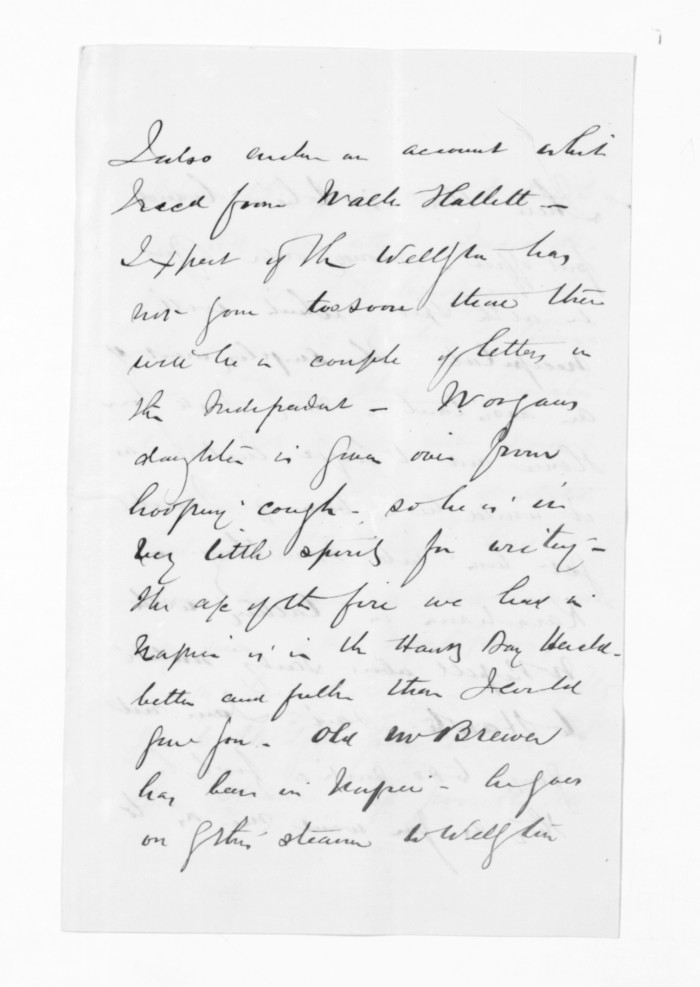 I also enclose an account which
I recd from Walter Hallett -
I expect if the Wellgtn has
not gone too soon there there
will be a couple of letters in
the Independent - Worgans
daughter is given over from
hooping cough - so he is in
very little spirits for writing -
The a/c of the fire we had in
Napier is in the Hawkes Bay Herald -
better and fuller than I could
give you - Old Mr Brewer
has been in Napier - he goes
on by this steamer to Wellgtn